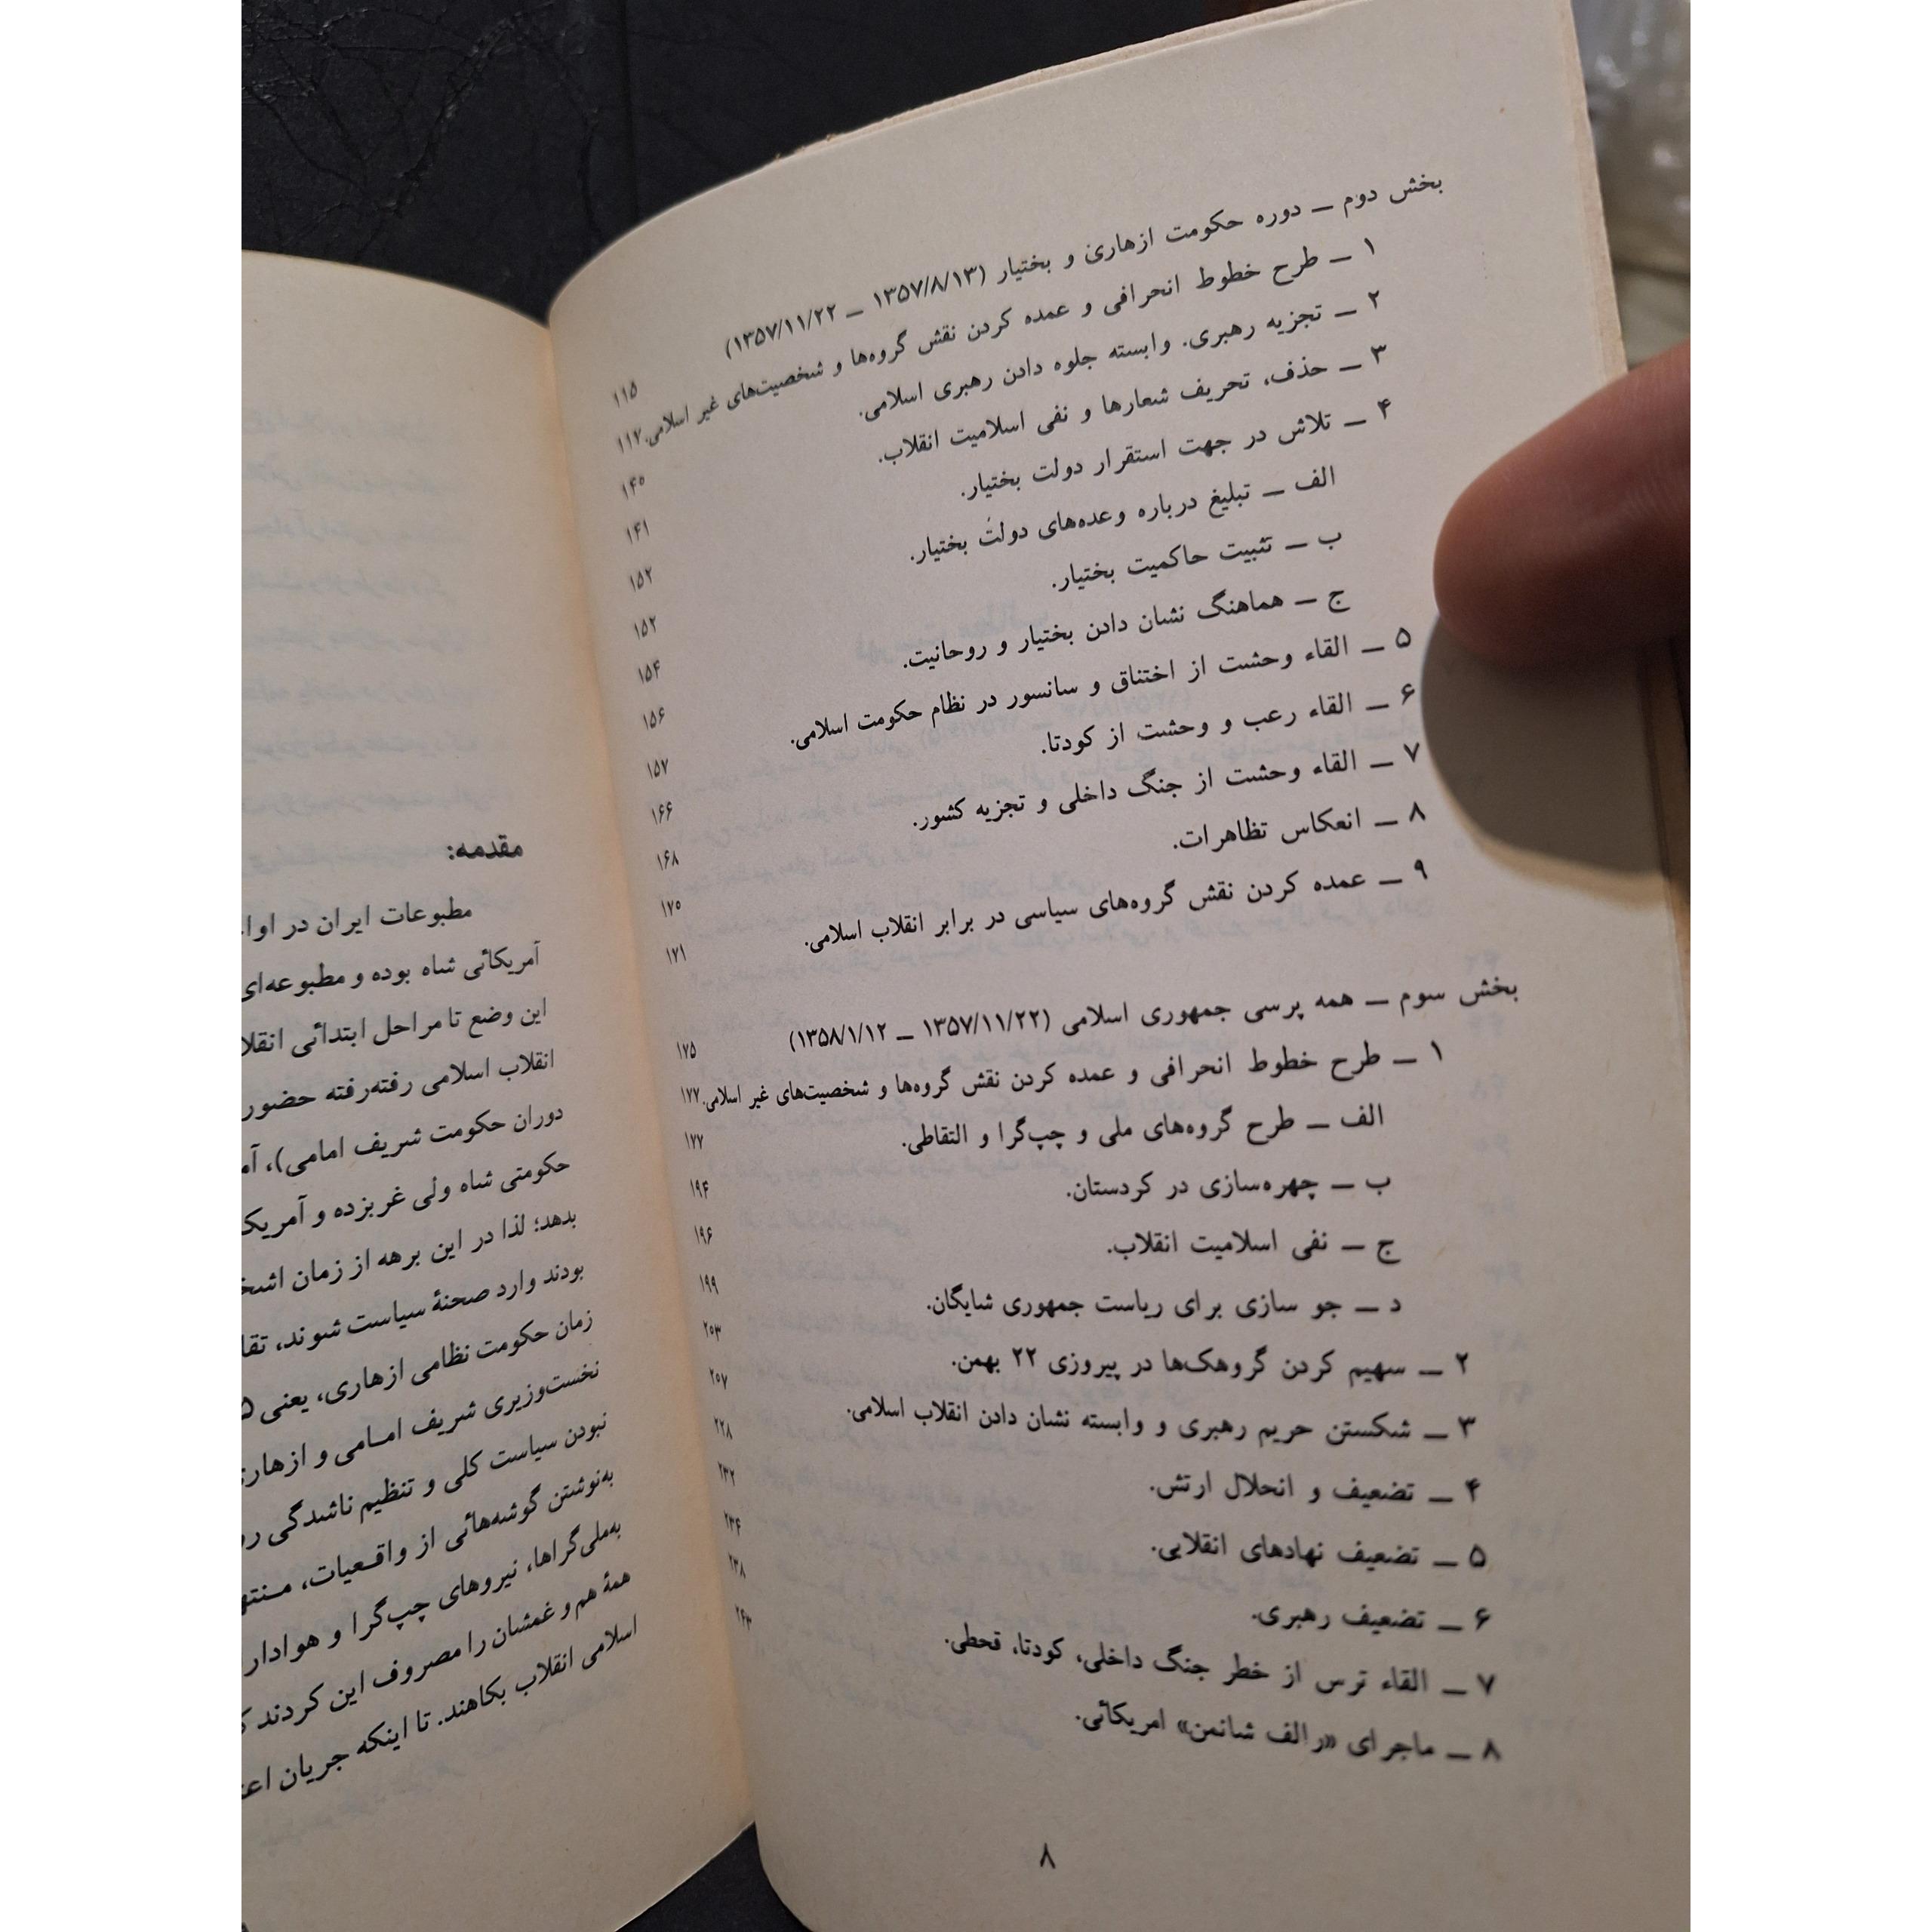 بخش دوم ــ دوره حکومت ازهاری و بختیار (۱۳۵۷/۸/۱۳ ــ ۱۳۵۷/۱۱/۲۲) ۱۱۵
۱ ــ طرح خطوط انحرافی و عمده کردن نقش گروه‌ها و شخصیت‌های غیر اسلامی. ۱۱۷
۲ ــ تجزیه رهبری. وابسته جلوه دادن رهبری اسلامی. ۱۴۰
۳ ــ حذف، تحریف شعارها و نفی اسلامیت انقلاب. ۱۴۱
۴ ــ تلاش در جهت استقرار دولت بختیار. ۱۵۲
الف ــ تبلیغ درباره وعده‌های دولت بختیار. ۱۵۲
ب ــ تثبیت حاکمیت بختیار. ۱۵۴
ج ــ هماهنگ نشان دادن بختیار و روحانیت. ۱۵۶
۵ ــ القاء وحشت از اختناق و سانسور در نظام حکومت اسلامی. ۱۵۷
۶ ــ القاء رعب و وحشت از کودتا. ۱۶۶
۷ ــ القاء وحشت از جنگ داخلی و تجزیه کشور. ۱۶۸
۸ ــ انعکاس تظاهرات. ۱۷۰
۹ ــ عمده کردن نقش گروه‌های سیاسی در برابر انقلاب اسلامی. ۱۷۱
بخش سوم ــ همه پرسی جمهوری اسلامی (۱۳۵۷/۱۱/۲۲ ــ ۱۳۵۸/۱/۱۲) ۱۷۵
۱ ــ طرح خطوط انحرافی و عمده کردن نقش گروه‌ها و شخصیت‌های غیر اسلامی. ۱۷۷
الف ــ طرح گروه‌های ملی و چپ‌گرا و التقاطی. ۱۷۷
ب ــ چهره‌سازی در کردستان. ۱۹۴
ج ــ نفی اسلامیت انقلاب. ۱۹۶
د ــ جو سازی برای ریاست جمهوری شایگان. ۱۹۹
۲ ــ سهیم کردن گروهک‌ها در پیروزی ۲۲ بهمن. ۲۰۳
۳ ــ شکستن حریم رهبری و وابسته نشان دادن انقلاب اسلامی. ۲۰۷
۴ ــ تضعیف و انحلال ارتش. ۲۲۸
۵ ــ تضعیف نهادهای انقلابی. ۲۳۲
۶ ــ تضعیف رهبری. ۲۳۴
۷ ــ القاء ترس از خطر جنگ داخلی، کودتا، قحطی. ۲۳۸
۸ ــ ماجرای «رالف شانمن» امریکائی. ۲۴۳
۸
مقدمه:
مطبوعات ایران در
آمریکائی شاه بوده و مطبوعه‌ای
این وضع تا مراحل ابتدائی
انقلاب اسلامی رفته‌رفته حضور
دوران حکومت شریف امامی)،
حکومتی شاه ولی غربزده و
بدهد؛ لذا در این برهه از زمان
بودند وارد صحنهٔ سیاست شوند،
زمان حکومت نظامی ازهاری، یعنی
نخست‌وزیری شریف امامی و
نبودن سیاست کلی و تنظیم ناشدگی
به‌نوشتن گوشه‌هائی از واقعیات،
به‌ملی‌گراها، نیروهای چپ‌گرا و
همهٔ هم و غمشان را مصروف این کردند
اسلامی انقلاب بکاهند. تا اینکه جریان